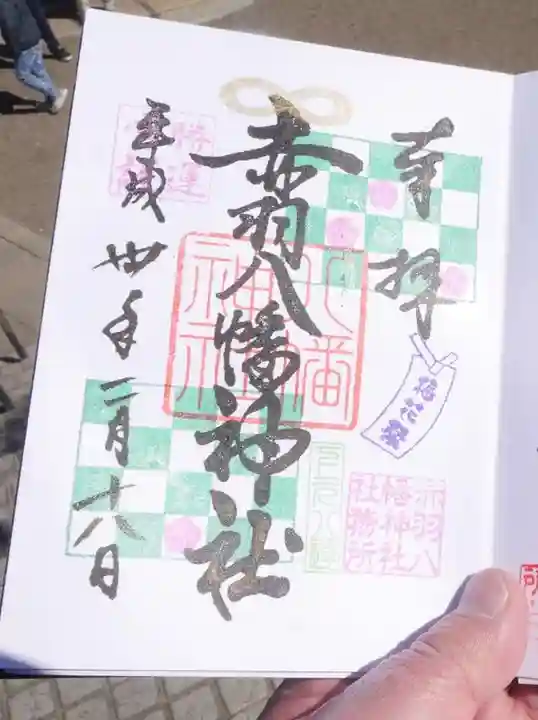 奉拝
赤羽八幡神社
平成卅年二月十六日
勝運
八幡
神社
赤羽八
幡神社
社務所